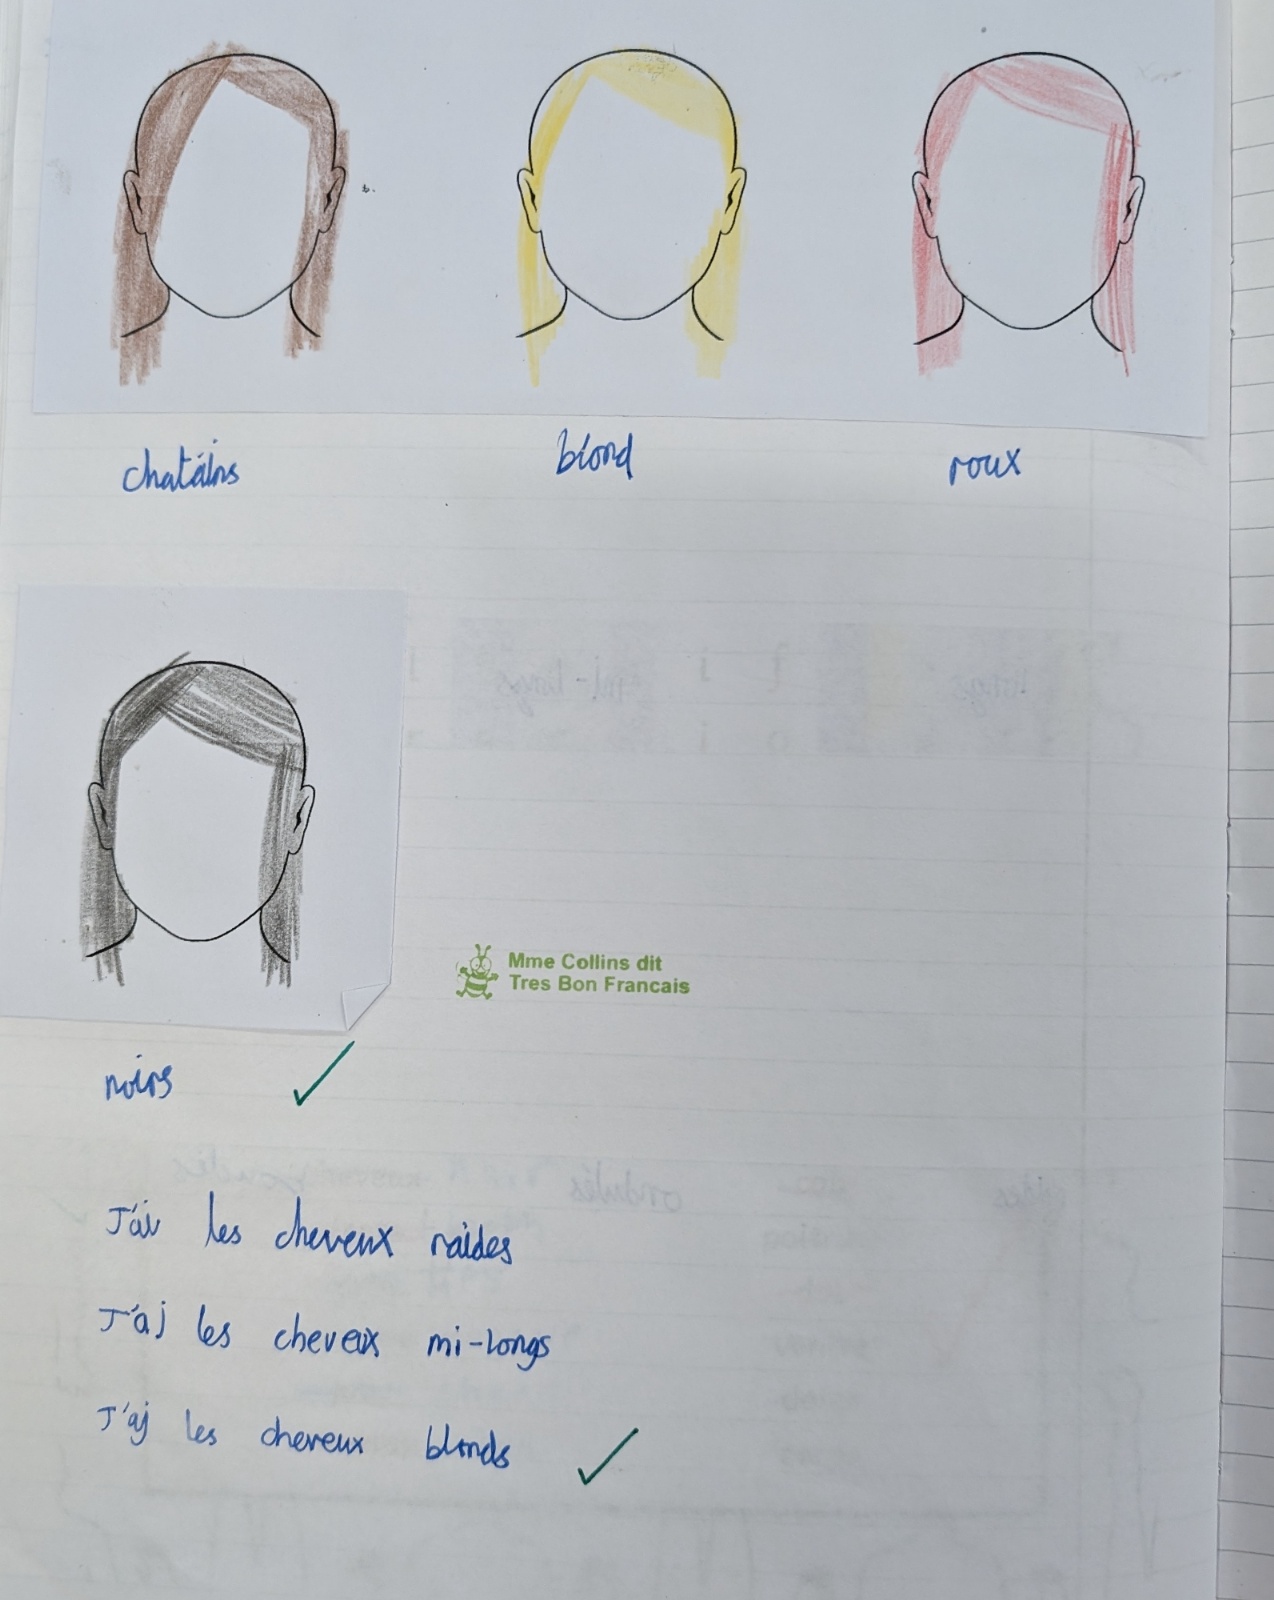 chatains
blond
roux
Mme Collins dit
Tres Bon Francais
noirs
J'ai les cheveux raides
J'aj les cheveux mi-longs
J'aj les cheveux blonds